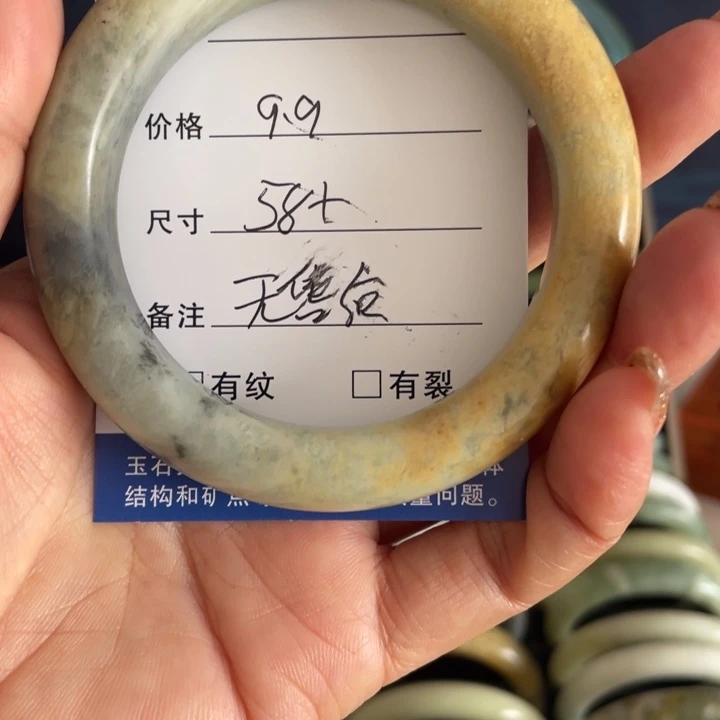 价格 9.9
尺寸 58+
备注 无售点
□有纹 □有裂
玉石
结构和矿点 量问题。